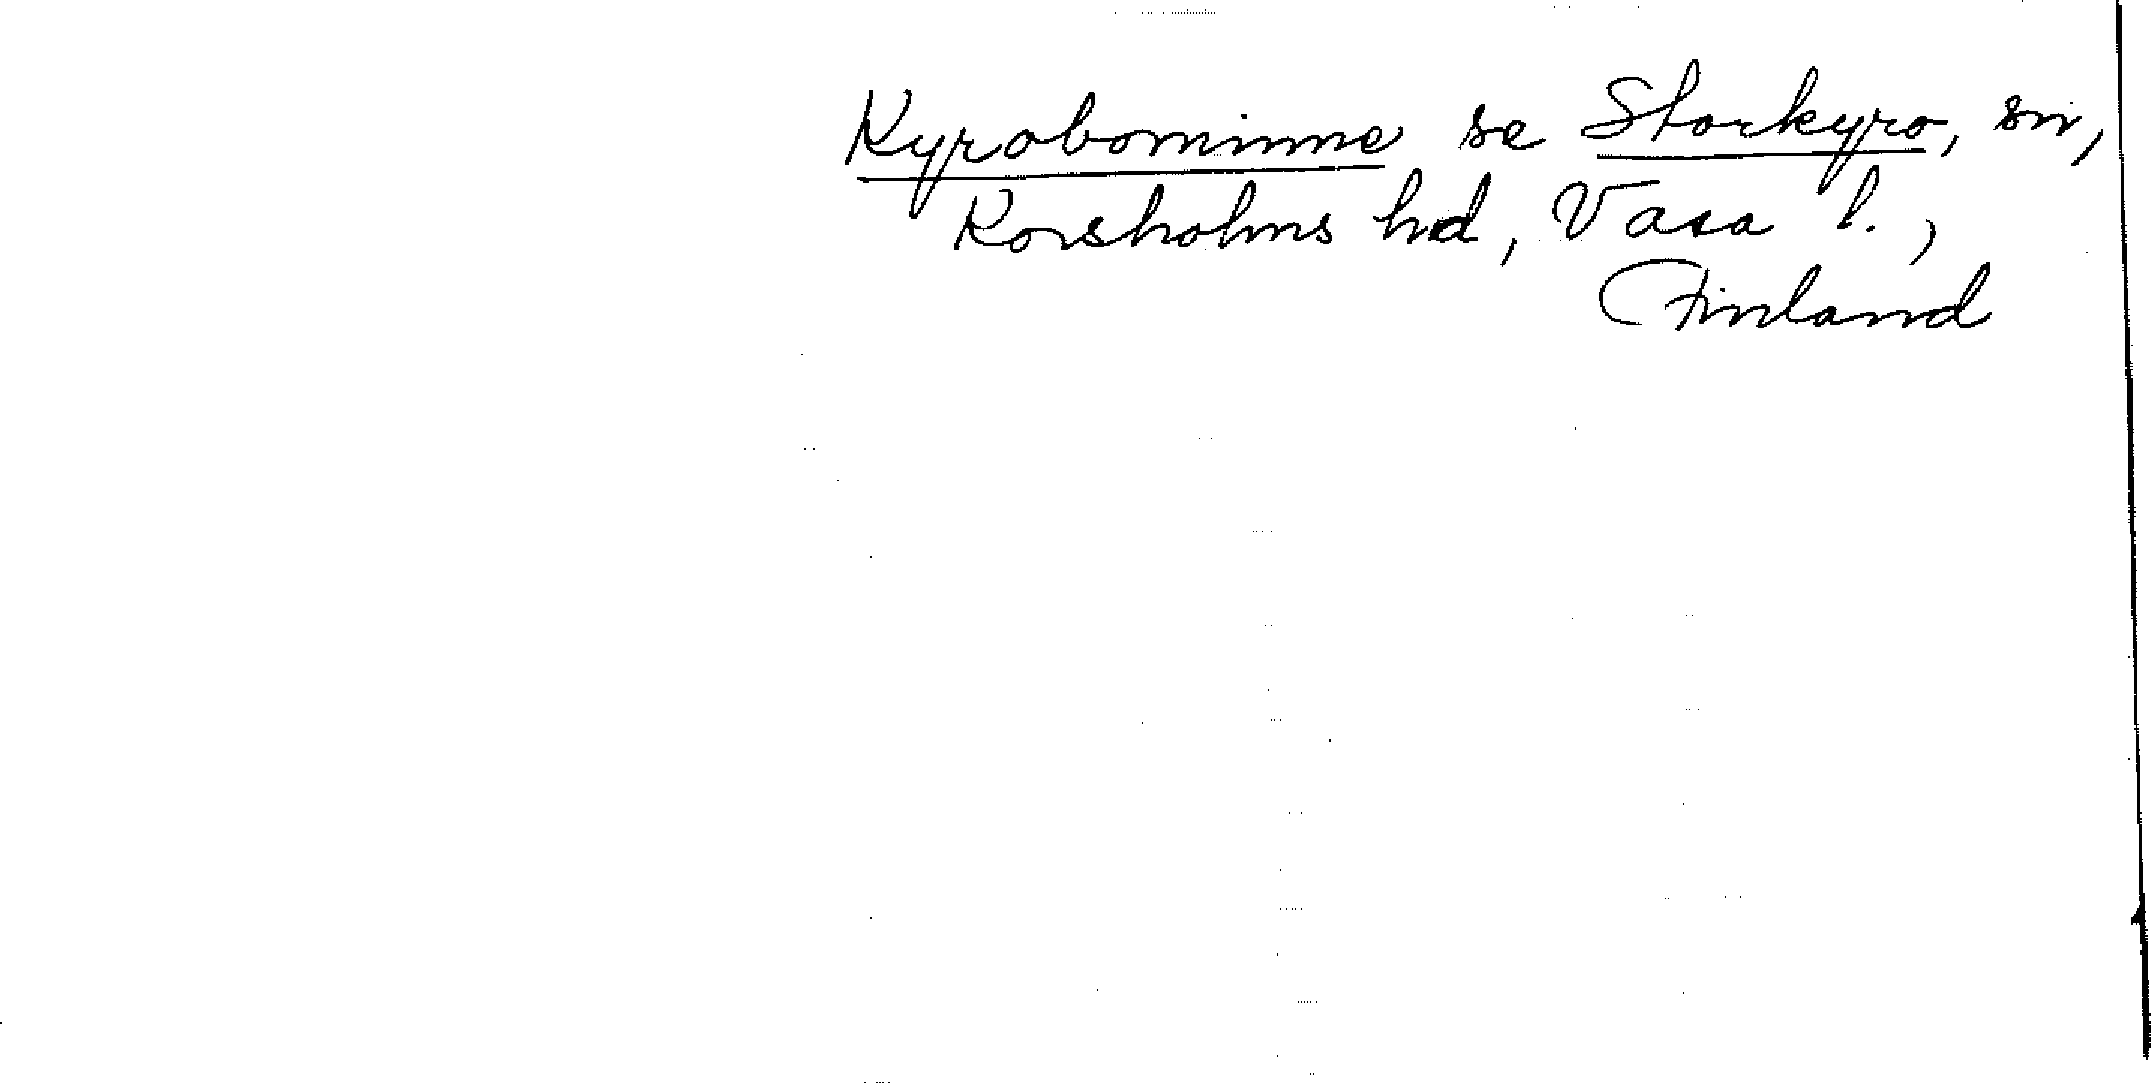 Kyrobominne se Storkyro, sn,
Korsholms hd, Vasa l.,
Finland